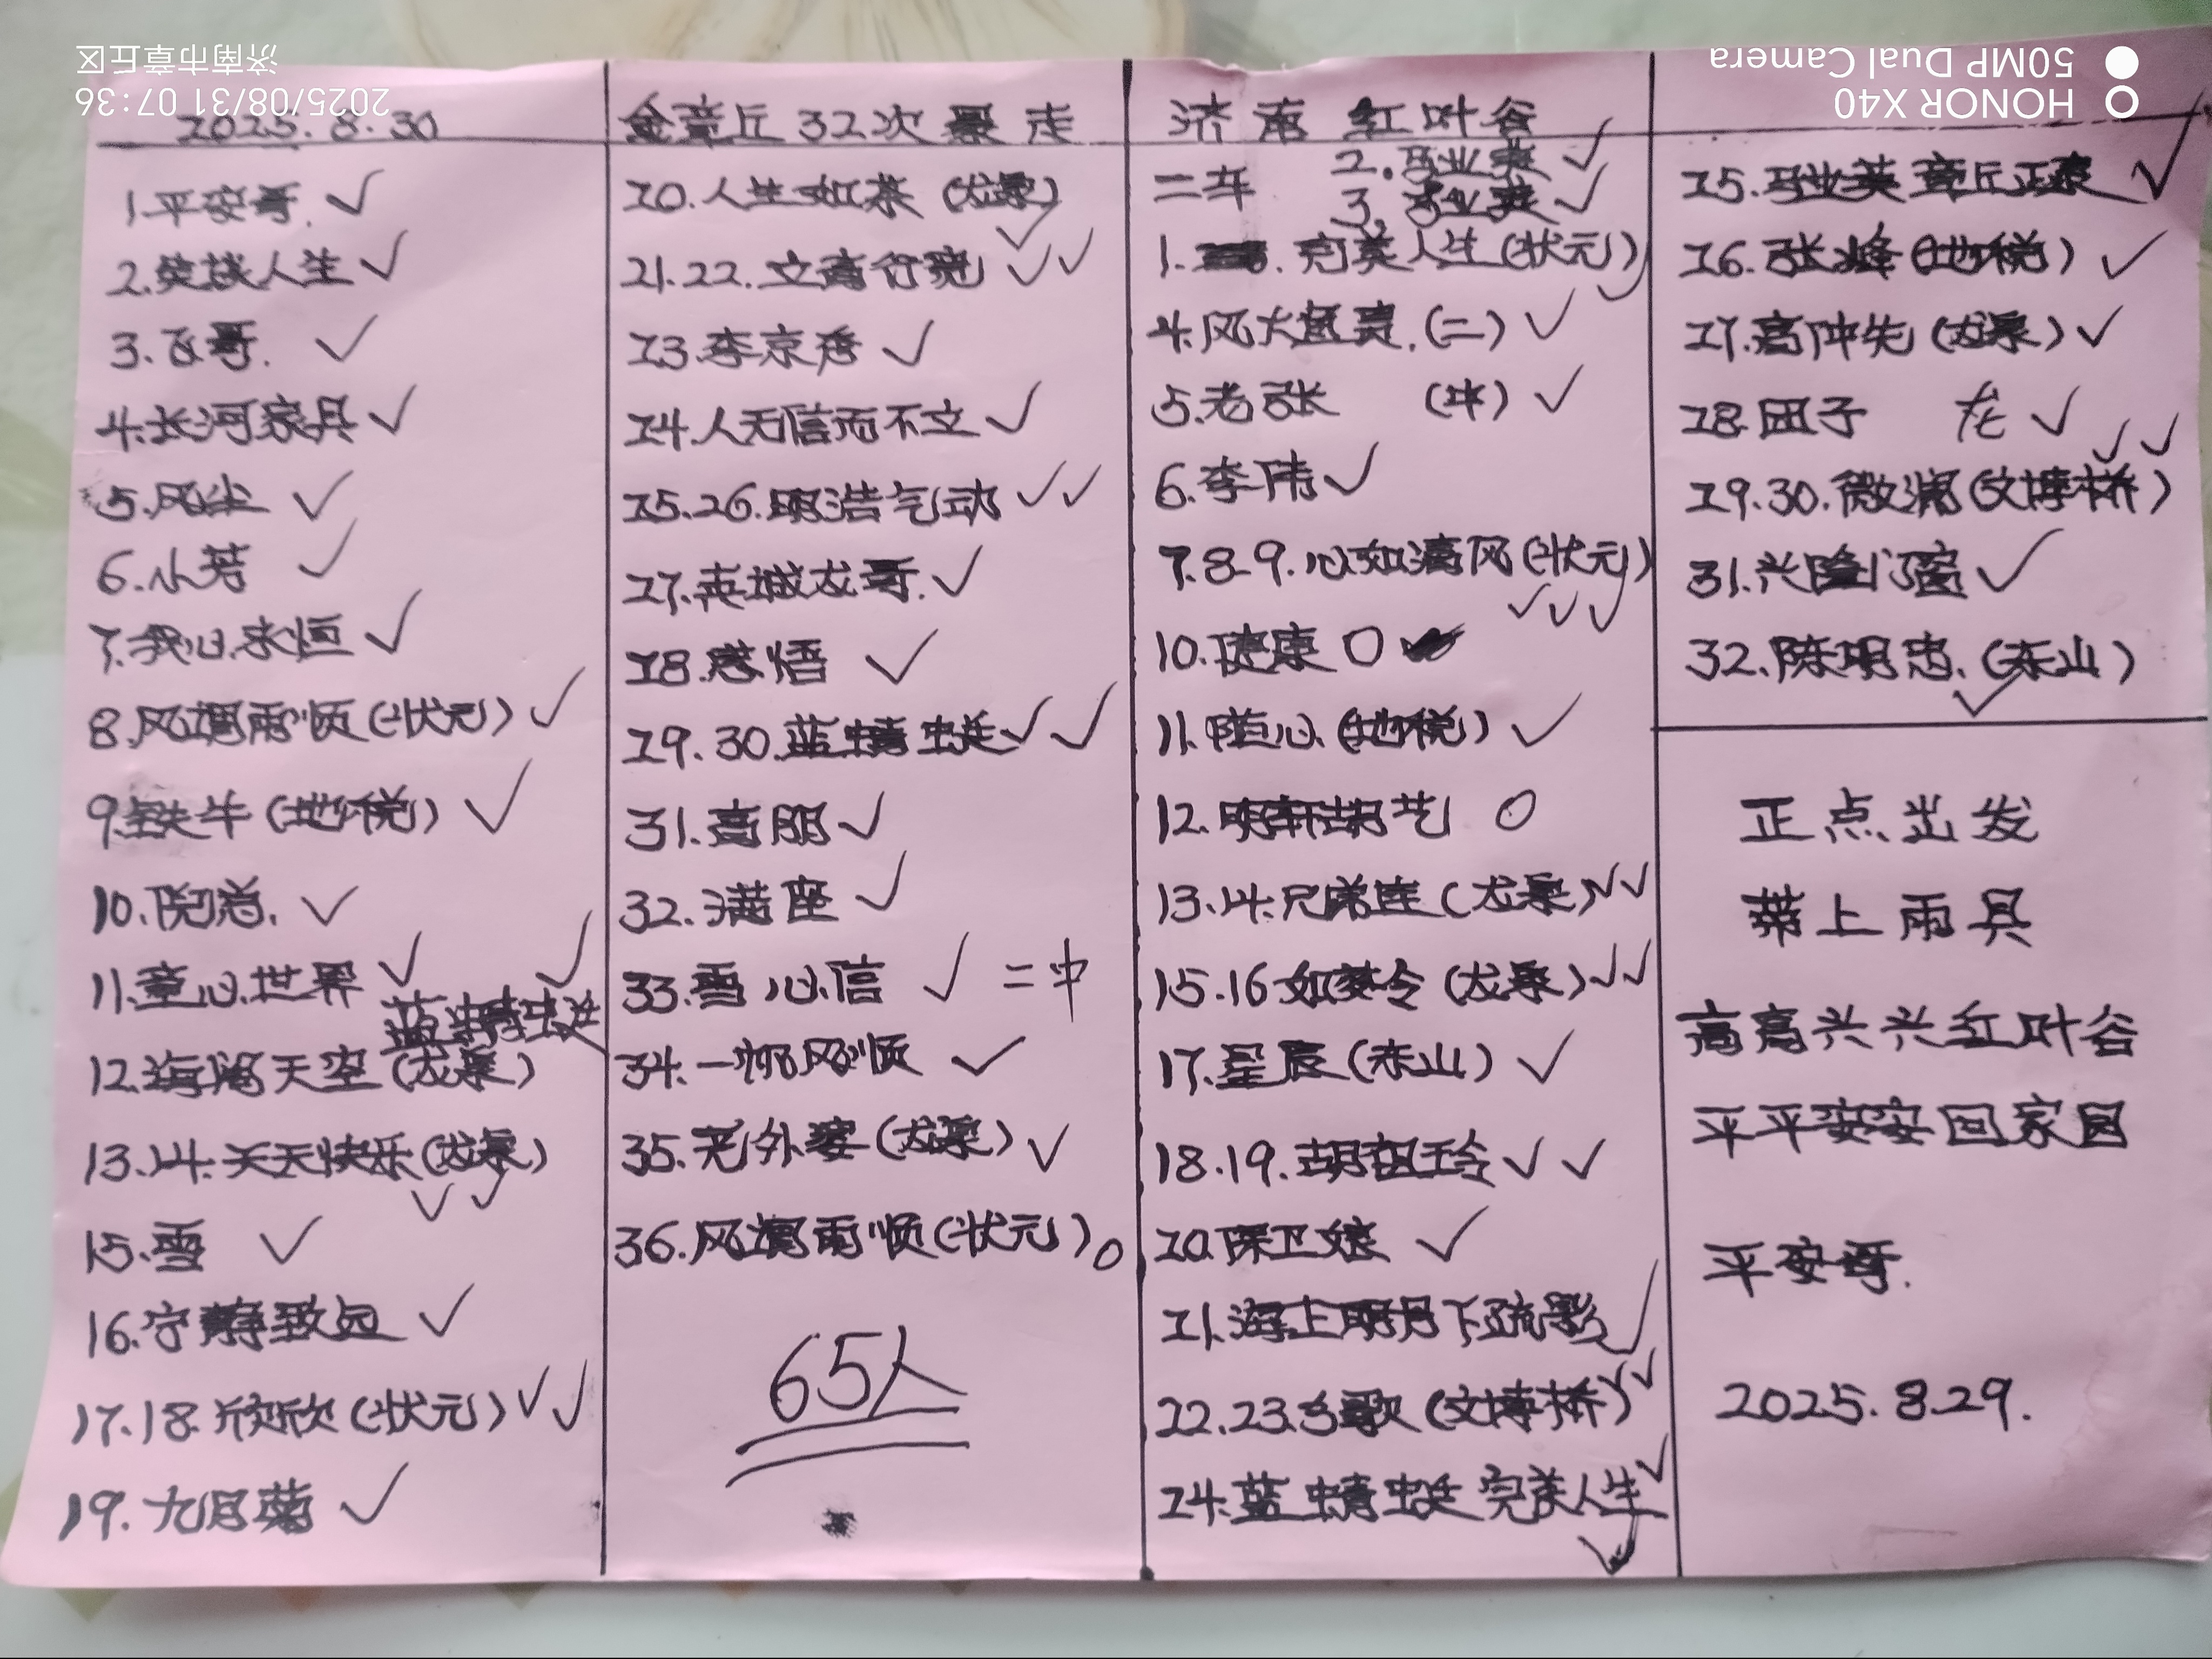 2025.8.30
金章丘32次暴走
济南红叶谷
1.平安哥.✓
2.笑谈人生✓
3.飞哥.✓
4.长河家具✓
5.风尘✓
6.小芳✓
7.我心永恒✓
8.风调雨顺(状元)✓
9.铁牛(地税)✓
10.倪总.✓
11.童心世界✓
蓝蜻蜓✓
12.海阔天空(龙泉)
13.14.天天快乐(龙泉)✓✓
15.雪✓
16.宁静致远✓
17.18.欣欣(状元)✓✓
19.九月菊✓
20.人生如茶(龙泉)✓
21.22.文高行亮✓✓
23.李京秀✓
24.人无信而不立✓
25.26.明浩气动✓✓
27.英城龙哥.✓
28.感悟✓
29.30.蓝蜻蜓✓✓
31.高丽✓
32.满座✓
33.雪心信✓二中
34.一帆风顺✓
35.老外婆(龙泉)✓
36.风调雨顺(状元)○
65人
二车
2.马业英✓
3.马业英✓
1.完美人生(状元)✓
4.风大(二)✓
5.老张(中)✓
6.李伟✓
7.8.9.心如清风(状元)✓✓✓
10.健康○
11.随心(地税)✓
12.明轩胡艺○
13.14.兄弟连(龙泉)✓✓
15.16如梦令(龙泉)✓✓
17.星辰(赤山)✓
18.19.胡祖玲✓✓
20.陈卫娘✓
21.海上明月下疏影✓
22.23.乡歌(文博桥)✓✓
24.蓝蜻蜓完美人生✓✓
25.马业英章丘正泰✓
26.张峰(地税)✓
27.高仲先(龙泉)✓
28.团子龙✓
29.30.微澜(文博桥)✓✓
31.兴隆门窗✓
32.陈明忠.(赤山)✓
正点出发
带上雨具
高高兴兴红叶谷
平平安安回家园
平安哥.
2025.8.29.
HONOR X40
50MP Dual Camera
2025/08/31 07:36
济南市章丘区